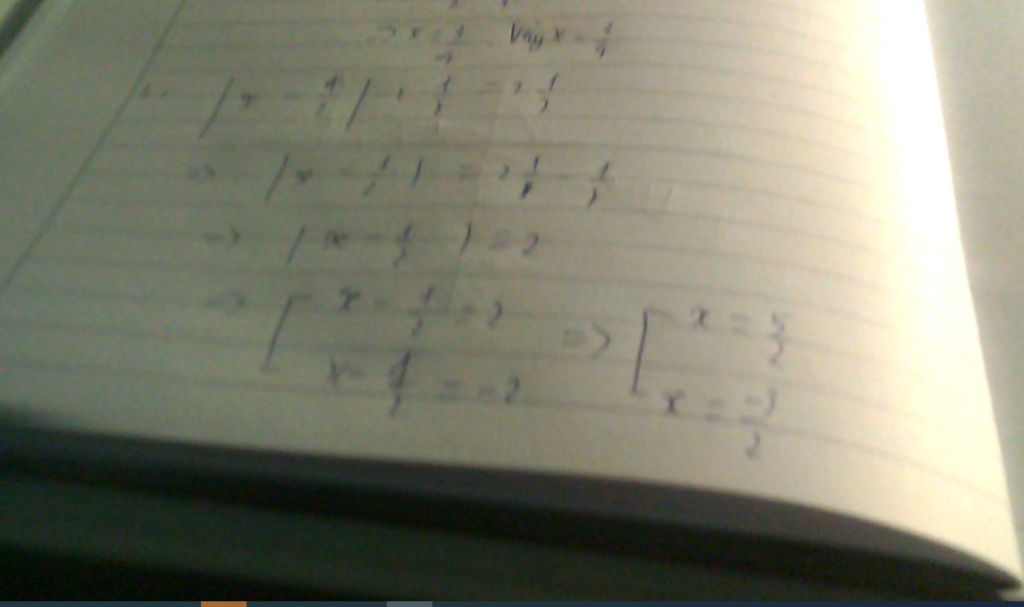 => x = 3/4 . Vậy x = 3/4
|x - 1/2| + 1/3 = 2 1/3
=> |x - 1/2| = 2 1/3 - 1/3
=> |x - 1/2| = 2
=> [ x - 1/2 = 2 => [ x = 5/2
x - 1/2 = -2 x = -3/2